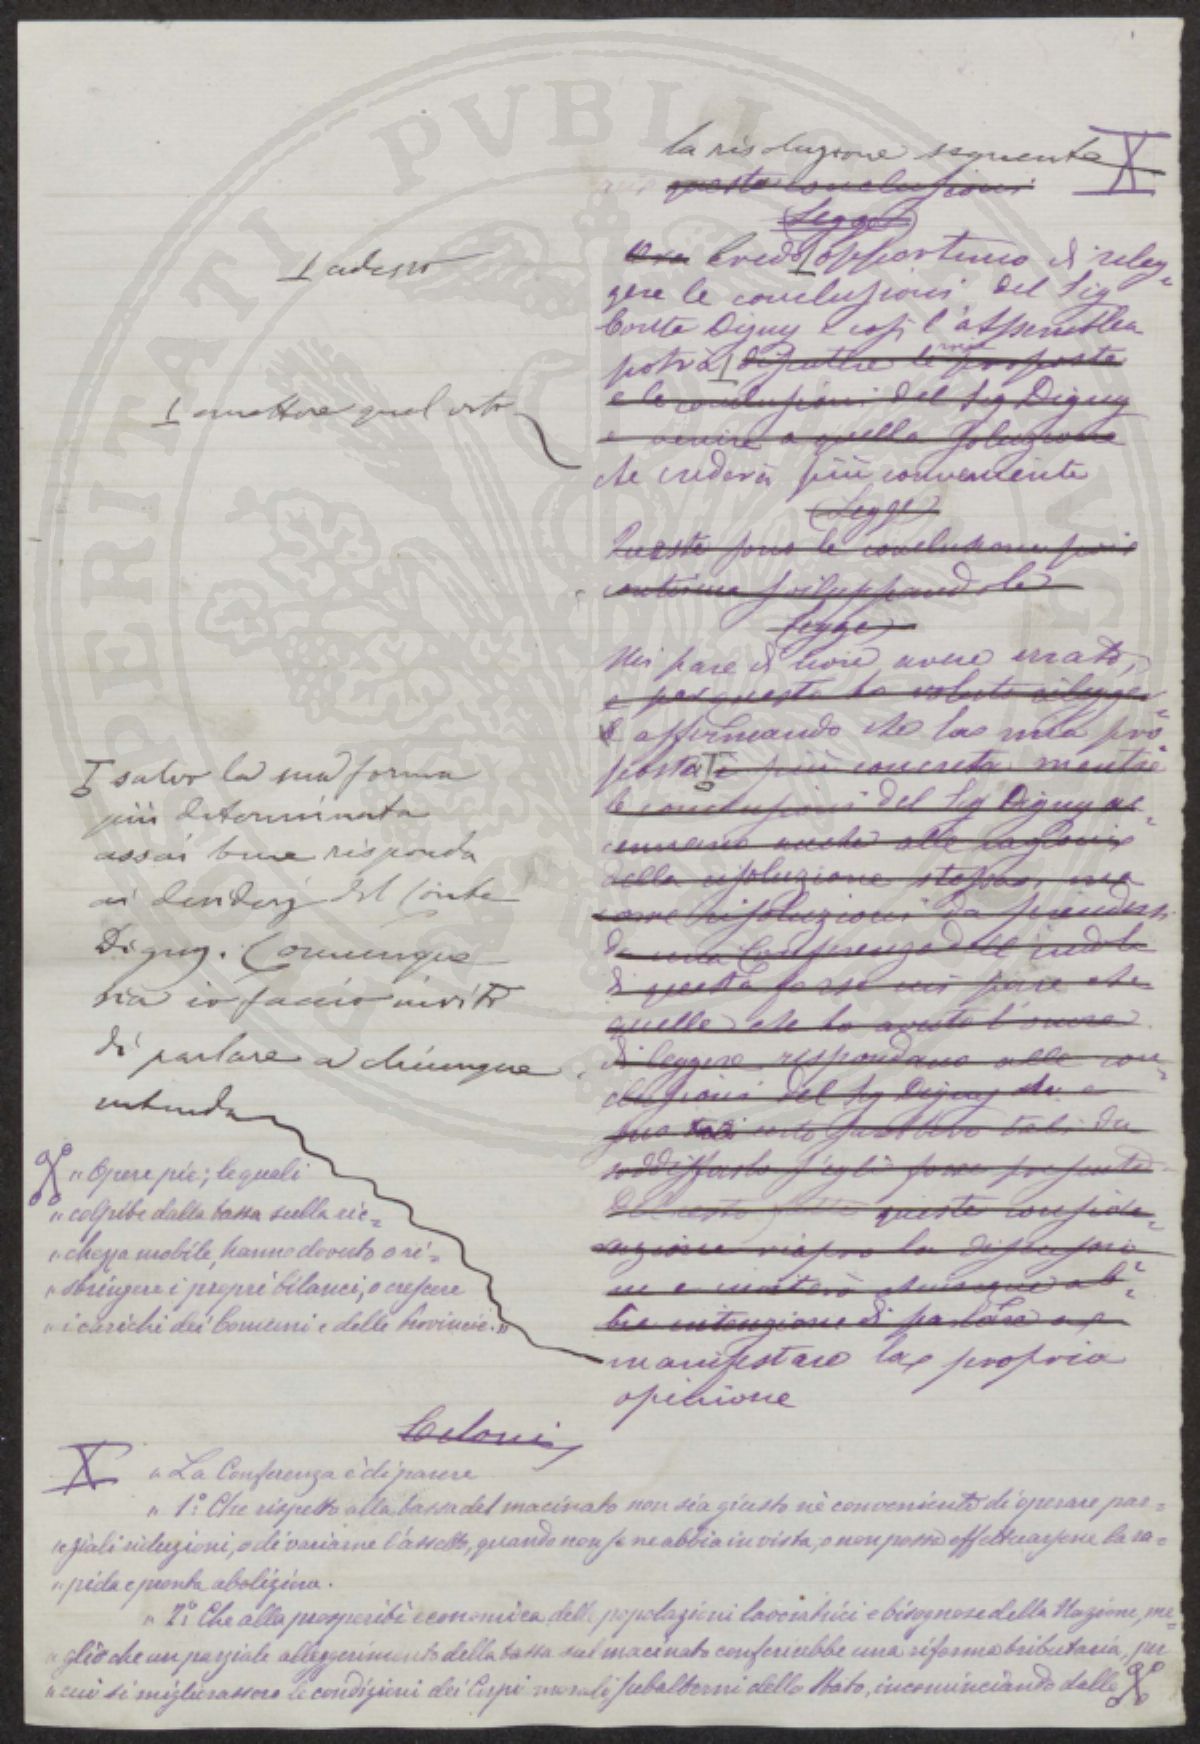 la risoluzione seguente
queste conclusioni
(Legge)
Ora Credo opportuno di rileg=
gere le conclusioni del Sig
Conte Digny e così l'assemblea
potrà discutere le mie proposte
e le conclusioni del Sig Digny
e venire a quella soluzione
che crederà più conveniente
(Legge)
Queste sono le conclusioni poi
continua sviluppandole
(Legge)
Mi pare di non avere errato,
e per questo ho voluto rilegger=
e affermando che la mia pro=
posta è più concreta mentre
le conclusioni del Sig Digny ac=
cennano anche alle ragioni
della risoluzione stessa, ma
come risoluzioni da prendersi
da una Conferenza dell'indole
di questa forse mi pare che
quelle che ho avuto l'onore
di leggere rispondano alle con=
clusioni del Sig Digny che
sono certo tali da
soddisfarlo s'egli fosse presente
Del resto queste conside=
razioni riapro la discussio=
ne e inviterò chiunque ab=
bia intenzione di parlare a
manifestare la propria
opinione
I adesso
I emettere quel voto
I salvo la sua forma
più determinata
assai bene risponda
ai desiderj del Conte
Digny. Comunque
sia io faccio invito
di parlare a chiunque
intenda
" Opere pie; le quali
" colpite dalla tassa sulla ric=
" chezza mobile, hanno dovuto o re=
" stringere i propri bilanci, o crescere
" i carichi dei Comuni e delle Provincie."
Celoni
X " La Conferenza è di parere
" 1º. Che rispetto alla tassa del macinato non sia giusto nè conveniente di operare par=
" ziali riduzioni, o di variarne l'assetto, quando non se ne abbia in vista, o non possa effettuarsene la ra=
" pida e pronta abolizione.
" 2º. Che alla prosperità economica delle popolazioni lavoratrici e bisognose della Nazione, me=
" glio che un parziale alleggerimento della tassa sul macinato conferirebbe una riforma tributaria, per
" cui si migliorassero le condizioni dei Corpi morali subalterni dello Stato, incominciando dalle
PERITATI PVBLI